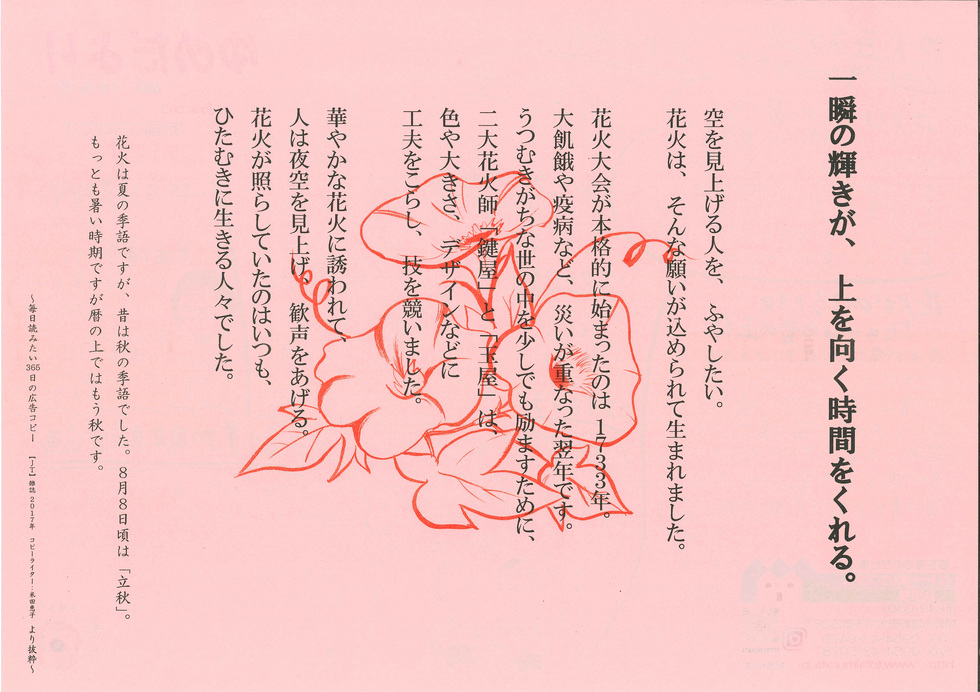 一瞬の輝きが、上を向く時間をくれる。
空を見上げる人を、ふやしたい。
花火は、そんな願いが込められて生まれました。
花火大会が本格的に始まったのは1733年。
大飢餓や疫病など、災いが重なった翌年です。
うつむきがちな世の中を少しでも励ますために、
二大花火師「鍵屋」と「玉屋」は、
色や大きさ、デザインなどに
工夫をこらし、技を競いました。
華やかな花火に誘われて、
人は夜空を見上げ、歓声をあげる。
花火が照らしていたのはいつも、
ひたむきに生きる人々でした。
花火は夏の季語ですが、昔は秋の季語でした。8月8日頃は「立秋」。
もっとも暑い時期ですが暦の上ではもう秋です。
～毎日読みたい365日の広告コピー　【JT】雑誌2017年　コピーライター：米田恵子　より抜粋～
ゆめだより